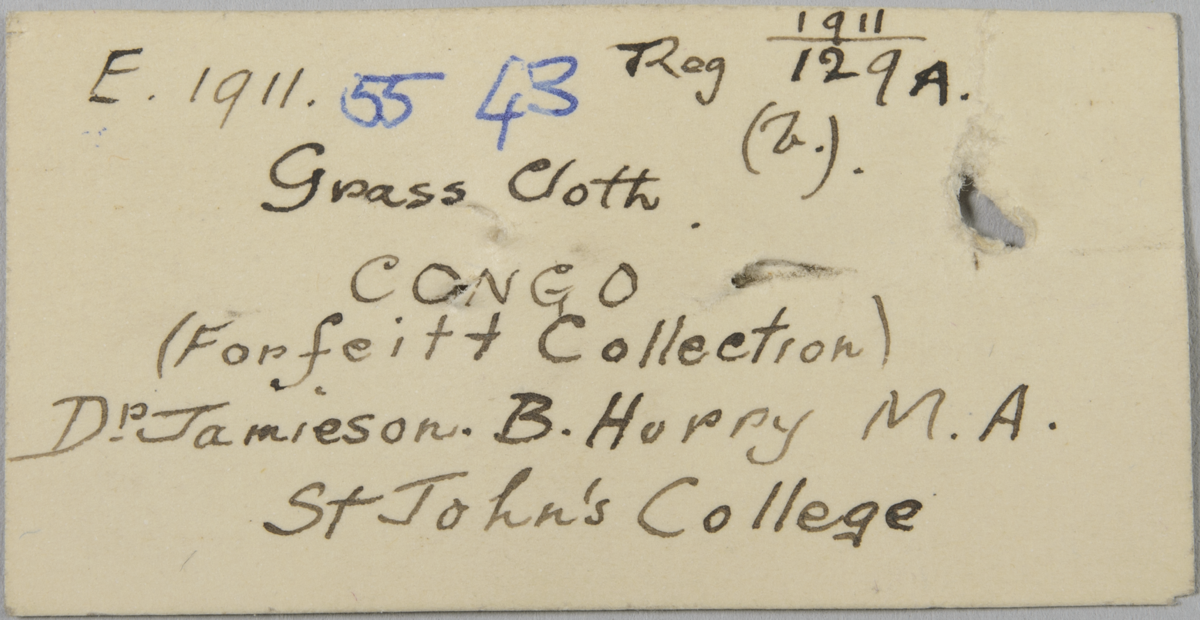 E. 1911. 55 43 Reg 1911/129 A.
(2.).
Grass Cloth.
CONGO
(Forfeitt Collection)
Dr. Jamieson. B. Hurry M. A.
St John's College